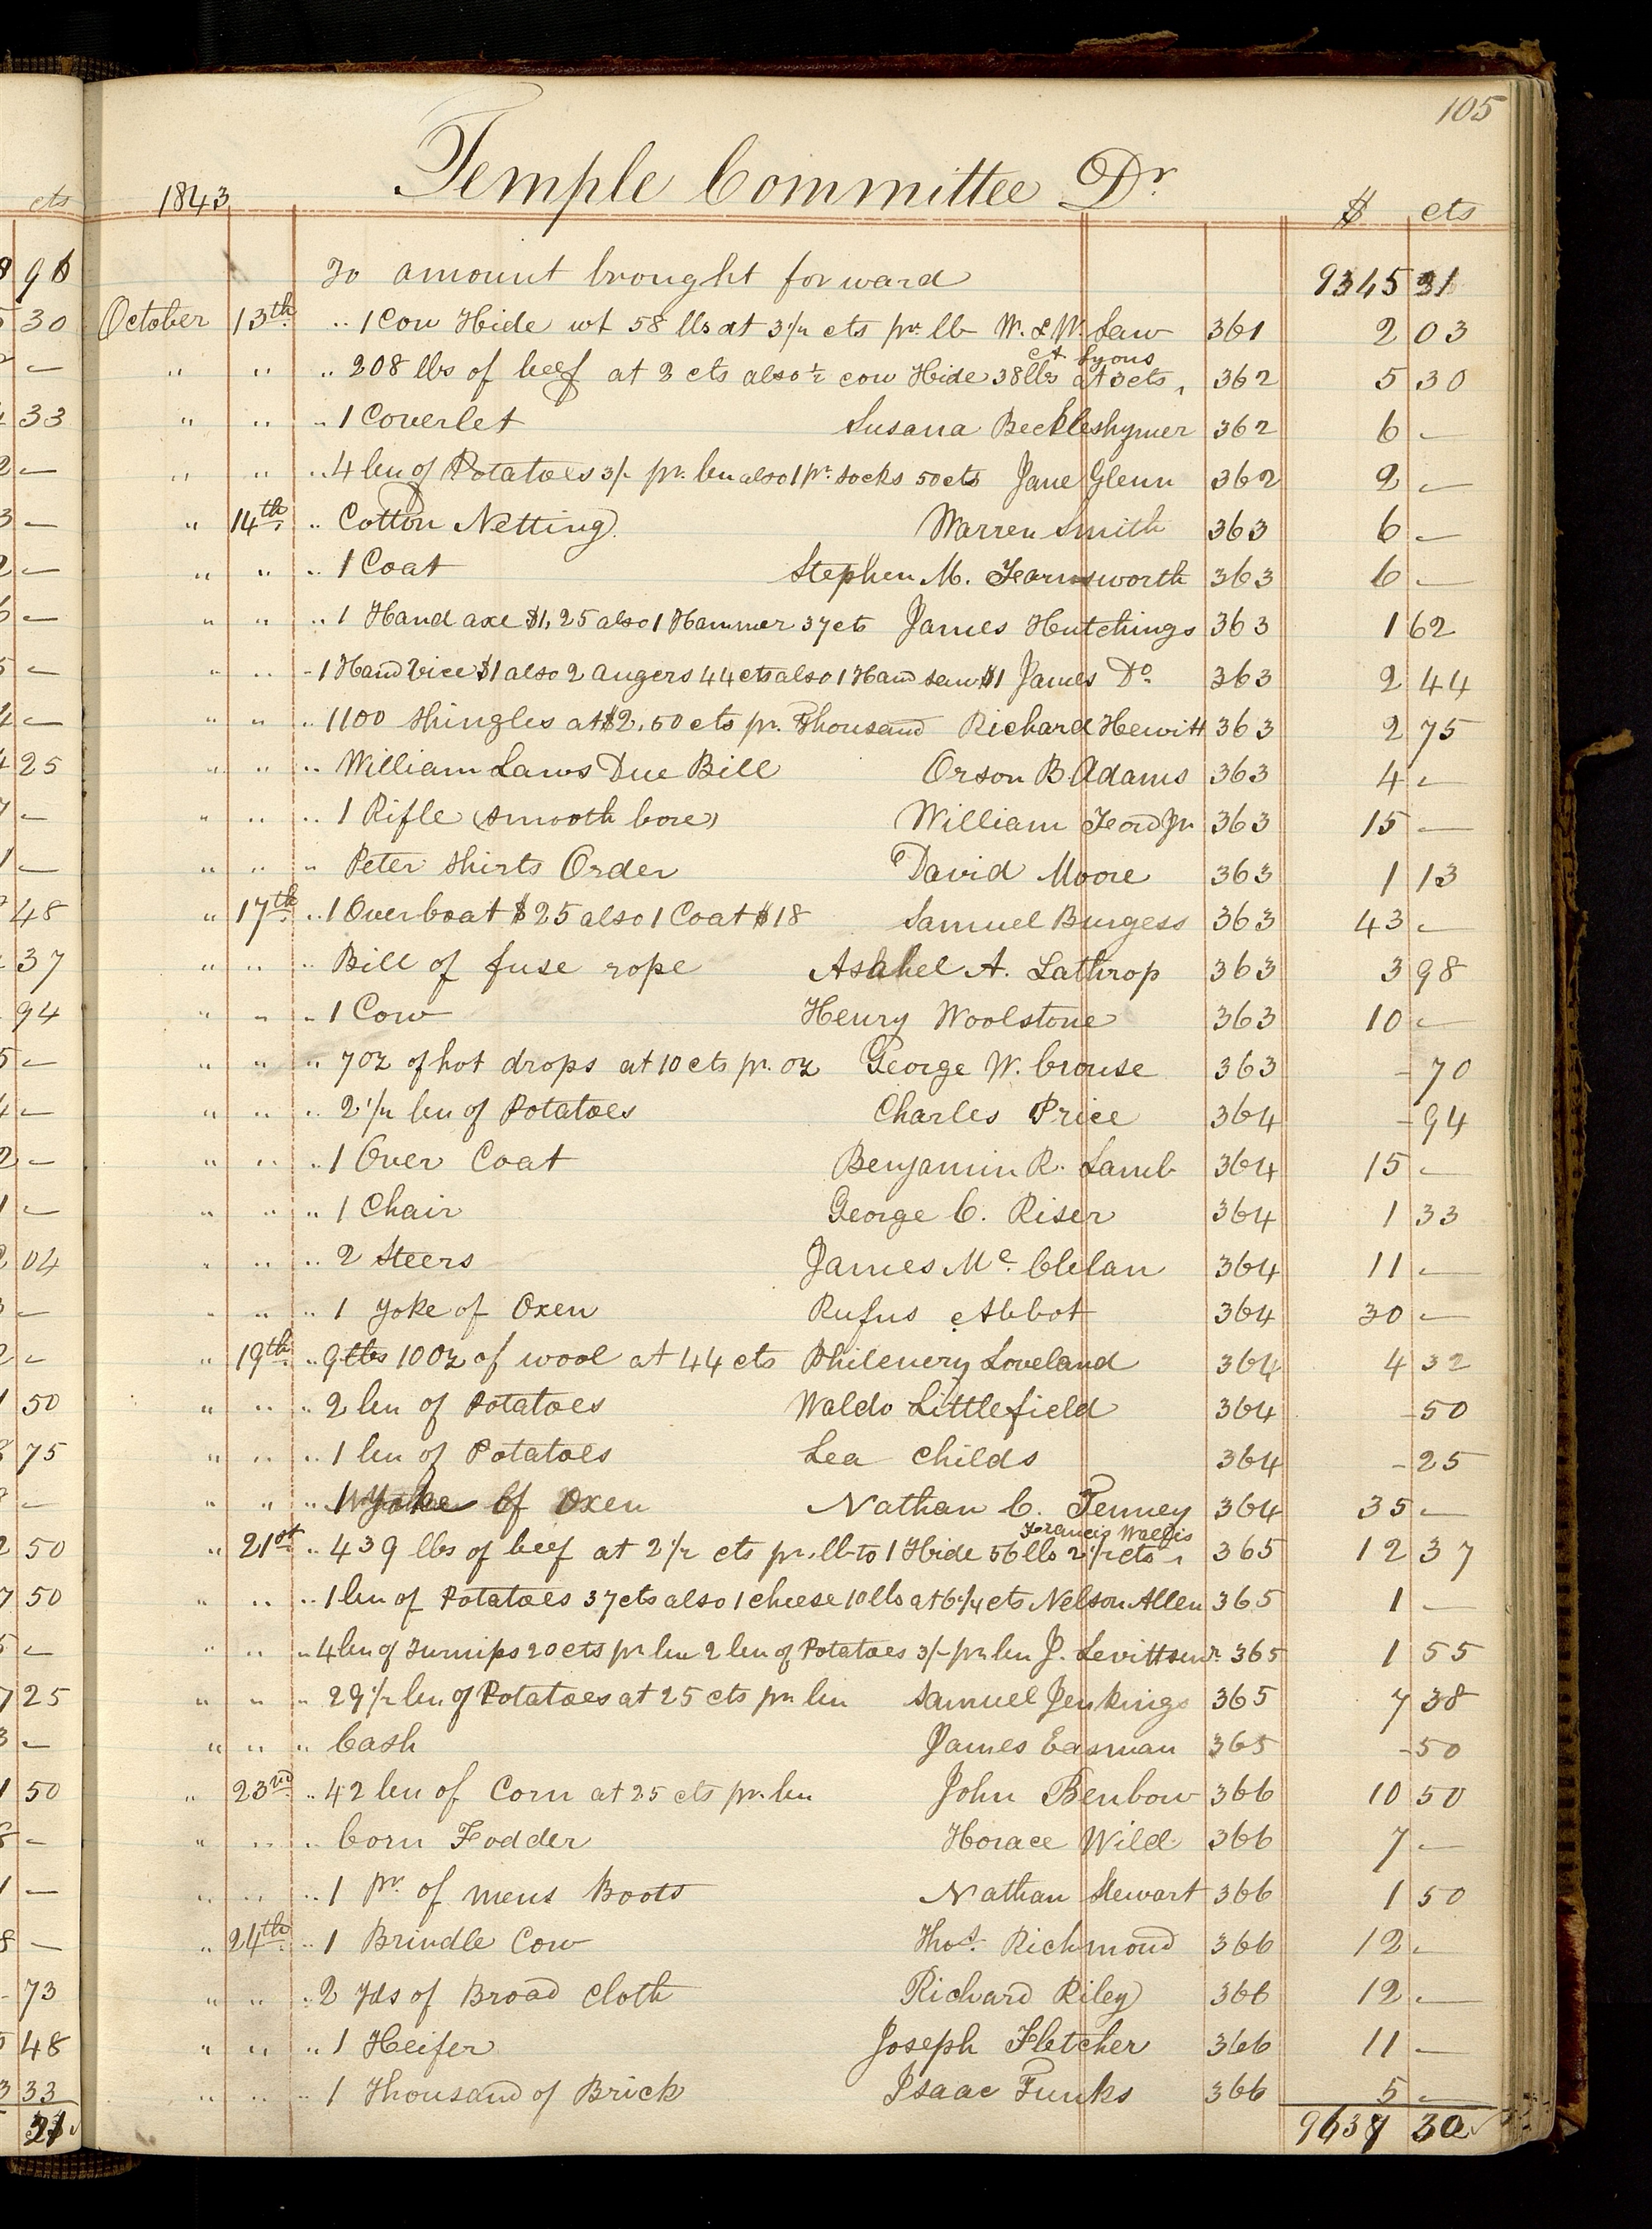 105
Temple Committee Dr
1843 $ cts
To amount brought forward 9345 31
October 13th " 1 Cow Hide wt 58 lbs at 3 1/2 cts pr. lb W. & W. Law 361 2 03
" " " 208 lbs of beef at 2 cts also 1/2 cow Hide 38 lbs at 3 cts, A Lyons 362 5 30
" " " 1 Coverlet Susana Beckleshymer 362 6 —
" " " 4 bu of Potatoes 3/- pr. bu also 1 pr. socks 50 cts Jane Glenn 362 2 —
" 14th " Cotton Netting Warren Smith 363 6 —
" " " 1 Coat Stephen M. Farnsworth 363 6 —
" " " 1 Hand axe $1,25 also 1 Hammer 37 cts James Hutchings 363 1 62
" " " 1 Hand Vice $1 also 2 augers 44 cts also 1 Hand saw $1 James Do. 363 2 44
" " " 1100 Shingles at $2,50 cts pr. Thousand Richard Hewitt 363 2 75
" " " William Laws Due Bill Orson B. Adams 363 4 —
" " " 1 Rifle (smooth bore) William Ford Jr 363 15 —
" " " Peter Shirts Order David Moore 363 1 13
" 17th " 1 Over boat $25 also 1 Coat $18 Samuel Burgess 363 43 —
" " " Bill of fuse rope Ashhel A. Lathrop 363 3 98
" " " 1 Cow Henry Woolstone 363 10 —
" " " 7 oz of hot drops at 10 cts pr. oz George W. Crouse 363 - 70
" " " 2 1/2 bu of Potatoes Charles Price 364 - 94
" " " 1 Over Coat Benjamin R. Lamb 364 15 —
" " " 1 Chair George C. Riser 364 1 33
" " " 2 Steers James Mc. Clelan 364 11 —
" " " 1 Yoke of Oxen Rufus Abbot 364 30 —
" 19th " 9 lbs 10 oz of wool at 44 cts Philenery Loveland 364 4 32
" " " 2 bu of Potatoes Waldo Littlefield 364 - 50
" " " 1 bu of Potatoes Lea Childs 364 - 25
" " " 1 Yoke of Oxen Nathan C. Tenney 364 35 —
" 21st " 439 lbs of beef at 2 1/2 cts pr. lb to 1 Hide 56 lbs 2 1/2 cts, Francis Wallis 365 12 37
" " " 1 bu of Potatoes 37 cts also 1 cheese 10 lbs at 6 1/4 cts Nelson Allen 365 1 —
" " " 4 bu of Turnips 20 cts pr bu 2 bu of Potatoes 3/- pr bu J. Levitt senr. 365 1 55
" " " 29 1/2 bu of Potatoes at 25 cts pr bu Samuel Jenkings 365 7 38
" " " Cash James Easman 365 - 50
" 23rd " 42 bu of Corn at 25 cts pr. bu John Benbow 366 10 50
" " " Corn Fodder Horace Wild 366 7 —
" " " 1 pr. of mens Boots Nathan Stewart 366 1 50
" 24th " 1 Brindle Cow Thos. Richmond 366 12 —
" " " 2 yds of Broad cloth Richard Riley 366 12 —
" " " 1 Heifer Joseph Fletcher 366 11 —
" " " 1 Thousand of Brick Isaac Funks 366 5 —
9637 30